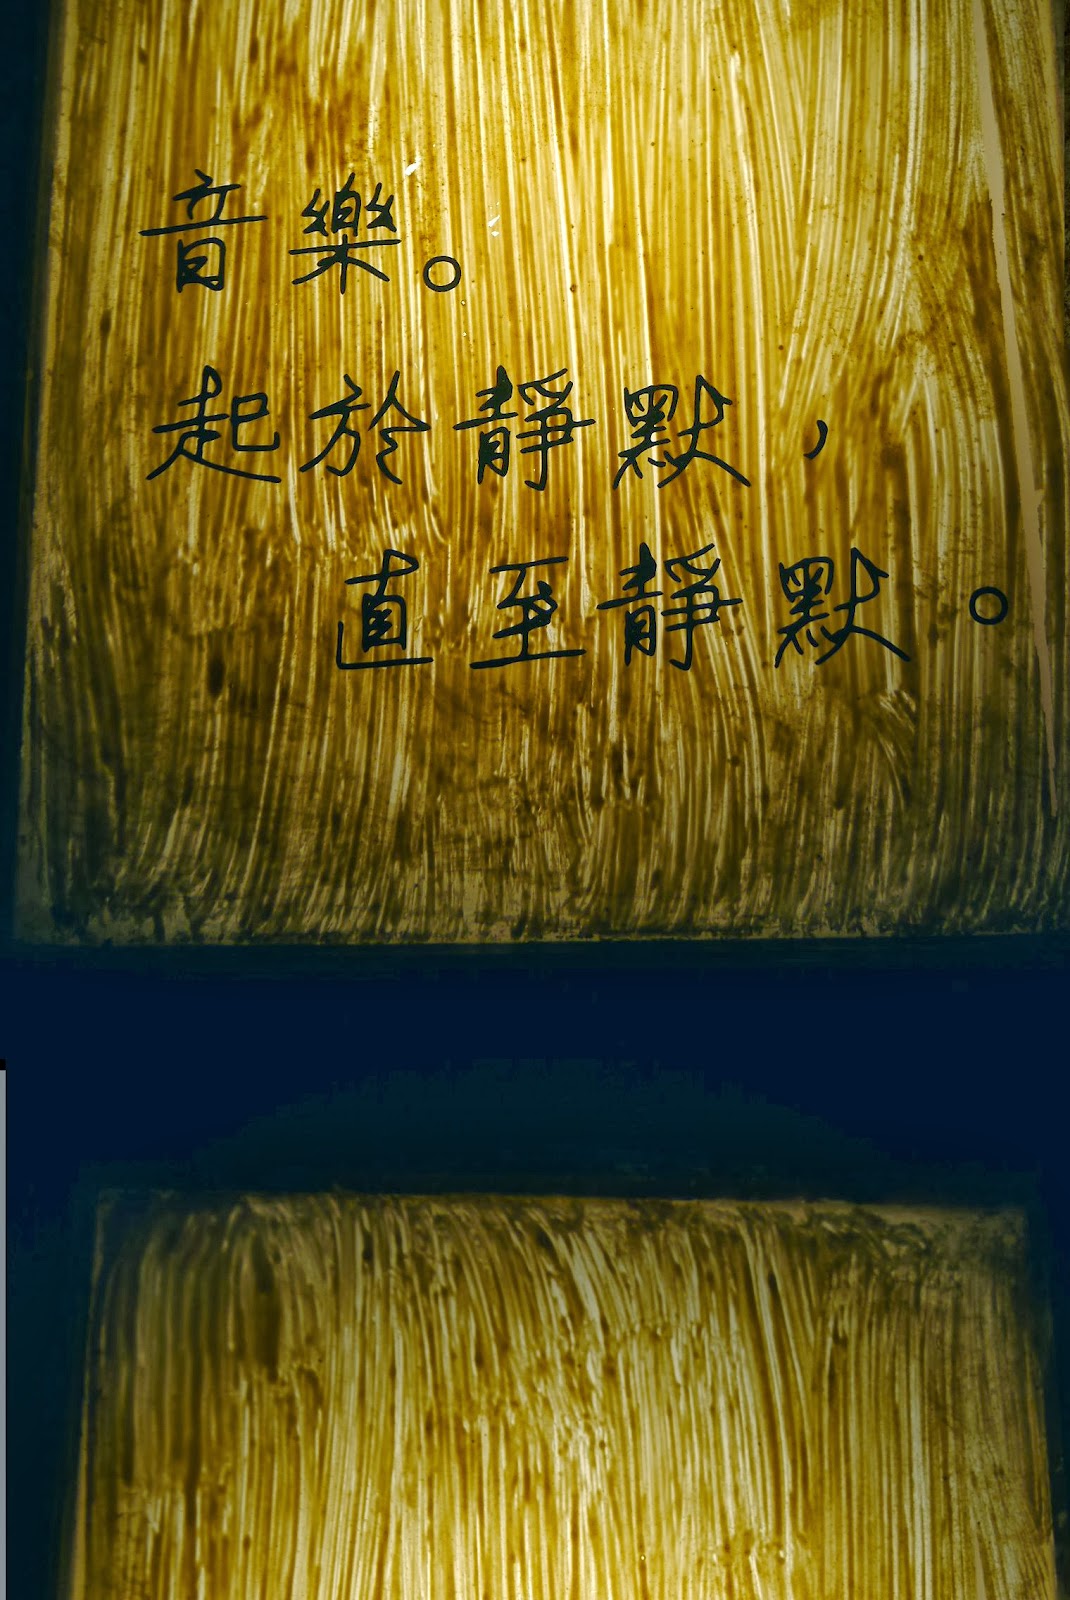 音樂。
起於靜默，
直至靜默。